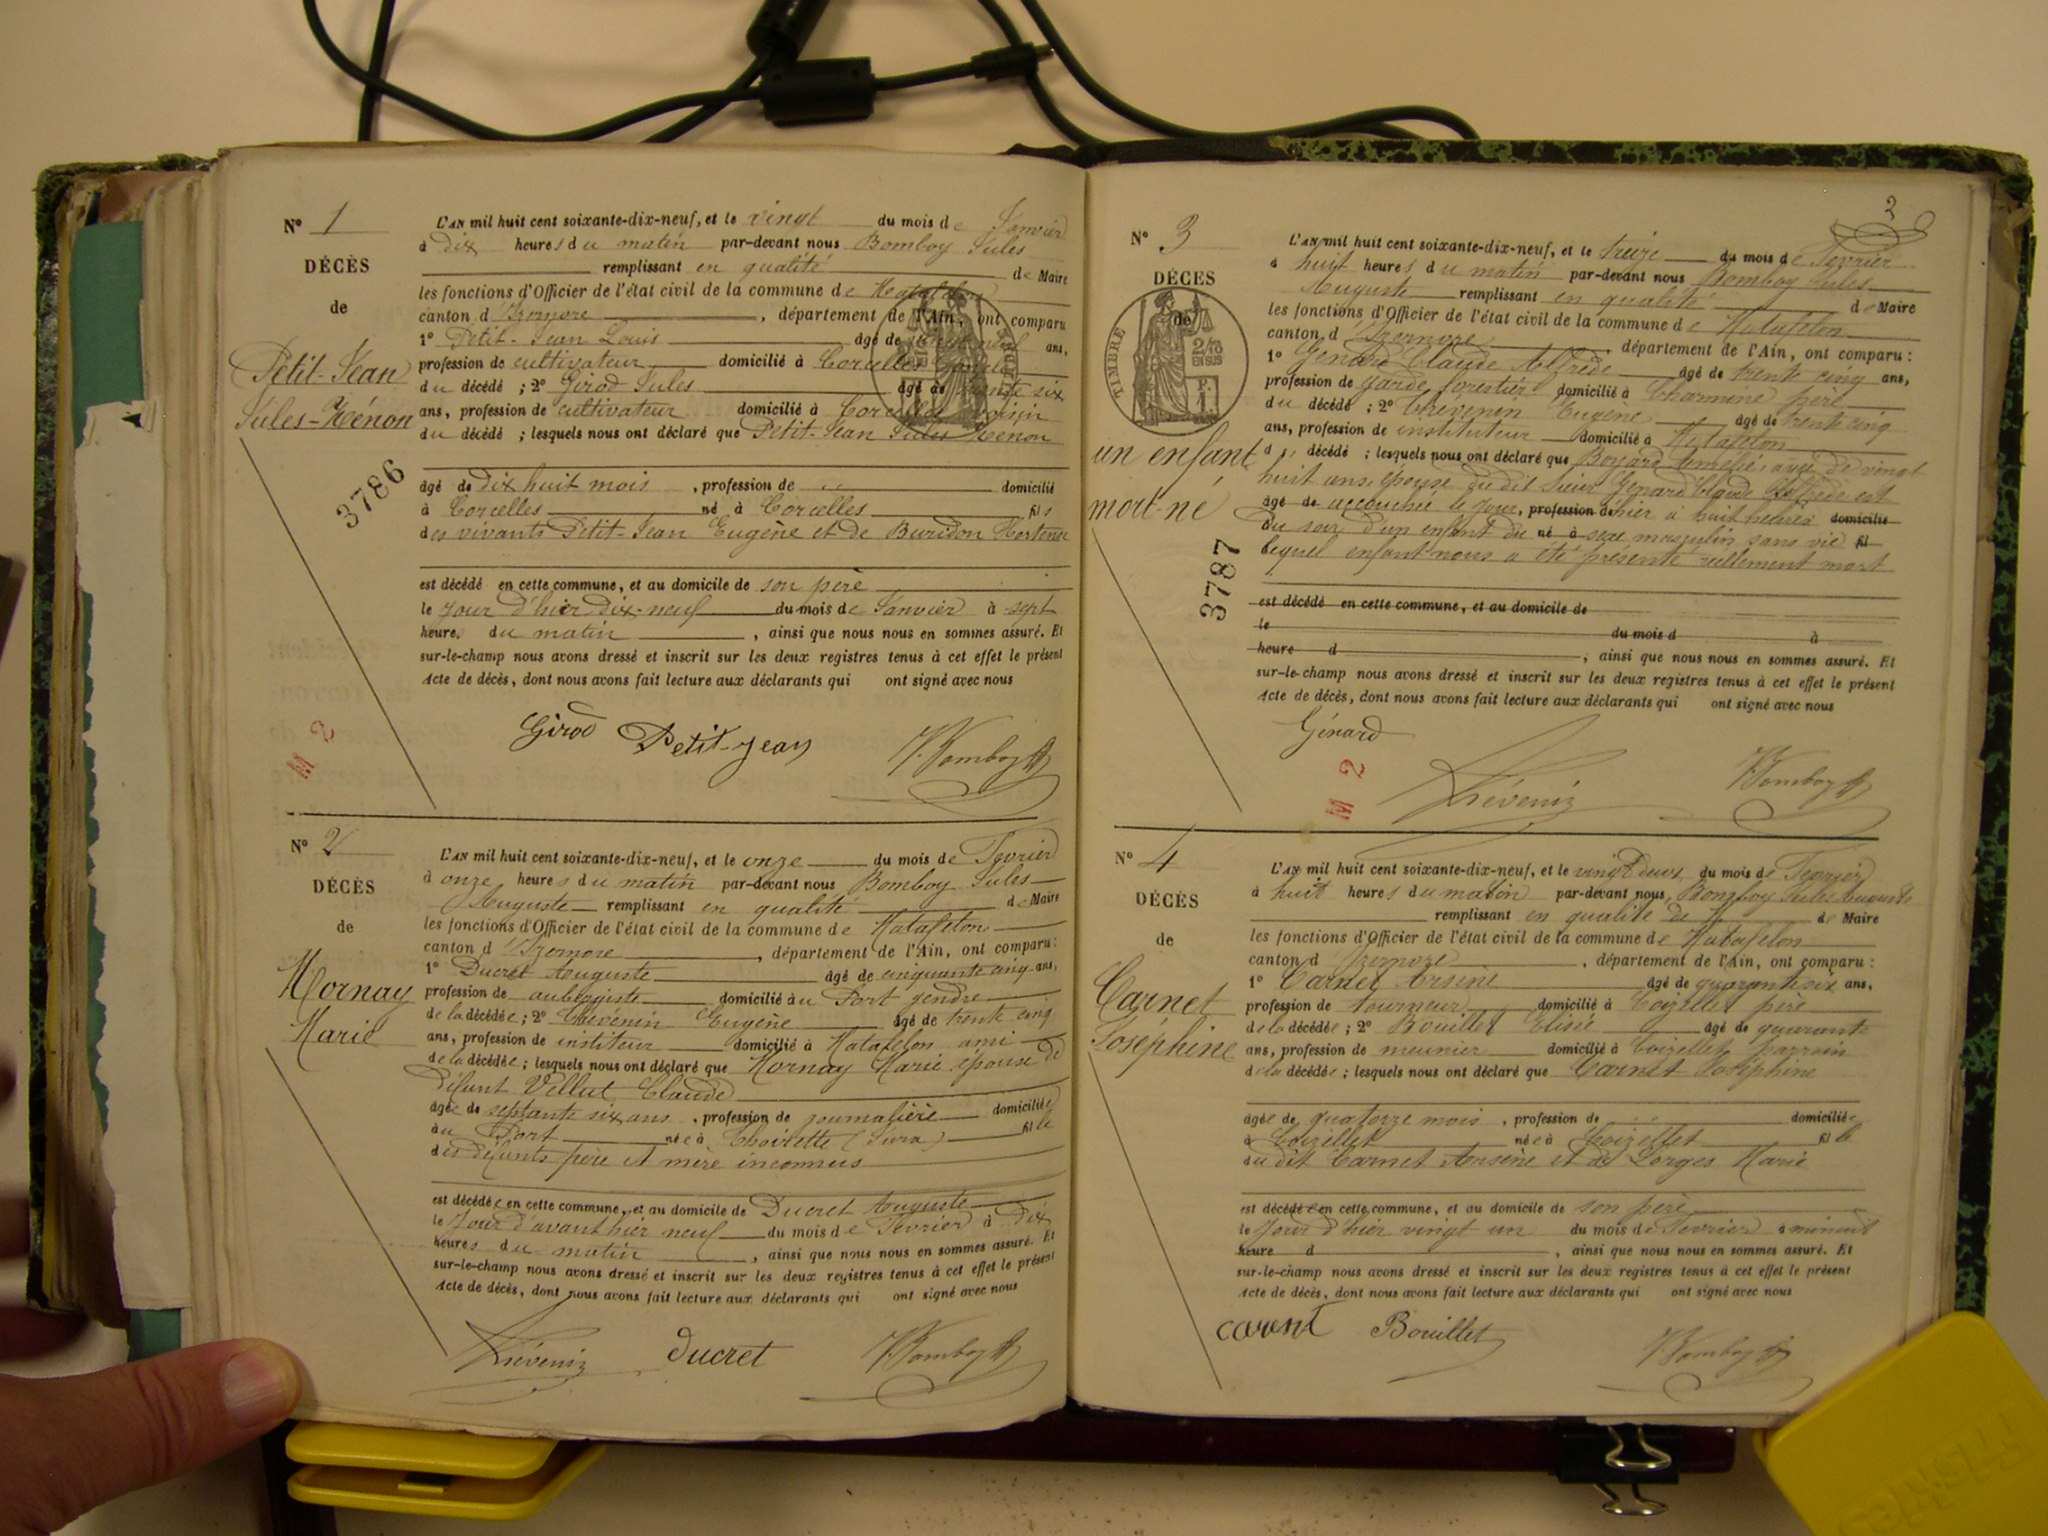 N° 1
DÉCÈS
de
Petit-Jean
Jules-Zénon
3786
M 2
L'AN mil huit cent soixante-dix-neuf, et le vingt du mois de Janvier
à dix heures du matin par-devant nous Bomboy Jules
remplissant en qualité de Maire
les fonctions d'Officier de l'état civil de la commune de Matafelon
canton d'Izernore, département de l'Ain, ont comparu
1° Petit-Jean Louis âgé de ans,
profession de cultivateur domicilié à Corcelles
du décédé ; 2° Girod Jules âgé de trente six
ans, profession de cultivateur domicilié à Corcelles voisin
du décédé ; lesquels nous ont déclaré que Petit-Jean Jules Zénon
âgé de dix huit mois, profession de domicilié
à Corcelles né à Corcelles fils
des vivants Petit-Jean Eugène et de Buridon Hortense
est décédé en cette commune, et au domicile de son père
le jour d'hier dix-neuf du mois de Janvier à sept
heure. du matin, ainsi que nous nous en sommes assuré. Et
sur-le-champ nous avons dressé et inscrit sur les deux registres tenus à cet effet le présent
Acte de décès, dont nous avons fait lecture aux déclarants qui ont signé avec nous
Girod Petit-jean J. Bomboy
N° 2
DÉCÈS
de
Mornay
Marie
L'AN mil huit cent soixante-dix-neuf, et le onze du mois de Fevrier
à onze heures du matin par-devant nous Bomboy Jules
Auguste remplissant en qualité de Maire
les fonctions d'Officier de l'état civil de la commune de Matafelon
canton d'Izernore, département de l'Ain, ont comparu :
1° Ducret Auguste âgé de cinquante cinq ans,
profession de aubergiste domicilié au Port gendre
de la décédée ; 2° Thévenin Eugène âgé de trente cinq
ans, profession de institeur domicilié à Matafelon ami
de la décédée ; lesquels nous ont déclaré que Mornay Marie épouse de
défunt Vellut Claude
âgée de septante six ans, profession de journalière domiciliée
au Port née à Thoirette (Jura) fille
des défunts père et mère inconnus
est décédée en cette commune, et au domicile de Ducret Auguste
le Jour d'avant hier neuf du mois de Fevrier à dix
heures du matin, ainsi que nous nous en sommes assuré. Et
sur-le-champ nous avons dressé et inscrit sur les deux registres tenus à cet effet le présent
Acte de décès, dont nous avons fait lecture aux déclarants qui ont signé avec nous
Thévenin ducret J. Bomboy
3
N° 3
DÉCÈS
de
TIMBRE
2/10
EN SUS
un enfant
mort-né
3787
M 2
L'AN mil huit cent soixante-dix-neuf, et le treize du mois de Fevrier
à huit heures du matin par-devant nous Bomboy Jules
Auguste remplissant en qualité de Maire
les fonctions d'Officier de l'état civil de la commune de Matafelon
canton d'Izernore département de l'Ain, ont comparu :
1° Génard Claude Alfrède âgé de trente cinq ans,
profession de garde forestier domicilié à Charmine père
du décédé ; 2° Thévenin Eugène âgé de trente cinq
ans, profession de instituteur domicilié à Matafelon
d décédé ; lesquels nous ont déclaré que Boyard Amélie, agée de vingt
huit ans, épouse du dit sieur Génard Claude Alfrède est
âgé de accouchée le jour, profession d'hier à huit heures domicilié
du soir d'un enfant du né à sexe masculin sans vie fil
lequel enfant nous a été présenté réellement mort
est décédé en cette commune, et au domicile de
le du mois d à
heure d, ainsi que nous nous en sommes assuré. Et
sur-le-champ nous avons dressé et inscrit sur les deux registres tenus à cet effet le présent
Acte de décès, dont nous avons fait lecture aux déclarants qui ont signé avec nous
Génard Thévenin J. Bomboy
N° 4
DÉCÈS
de
Carnet
Joséphine
L'AN mil huit cent soixante-dix-neuf, et le vingt deux du mois de Fevrier
à huit heures du matin par-devant nous, Bomboy Jules Auguste
remplissant en qualité de de Maire
les fonctions d'Officier de l'état civil de la commune de Matafelon
canton d Izernore, département de l'Ain, ont comparu :
1° Carnet Arsène âgé de quarante six ans,
profession de tourneur domicilié à Coizellet père
de la décédée ; 2° Bouillet Elisé âgé de quarante
ans, profession de meunier domicilié à Coizellet parrain
de la décédée ; lesquels nous ont déclaré que Carnet Joséphine
âgée de quatorze mois, profession de domiciliée
à Coizellet née à Coizellet fille
du dit Carnet Arsène et de Lorges Marie
est décédée en cette commune, et au domicile de son père
le Jour d'hier vingt un du mois de Fevrier à minuit
heure d, ainsi que nous nous en sommes assuré. Et
sur-le-champ nous avons dressé et inscrit sur les deux registres tenus à cet effet le présent
Acte de décès, dont nous avons fait lecture aux déclarants qui ont signé avec nous
carent Bouillet J. Bomboy